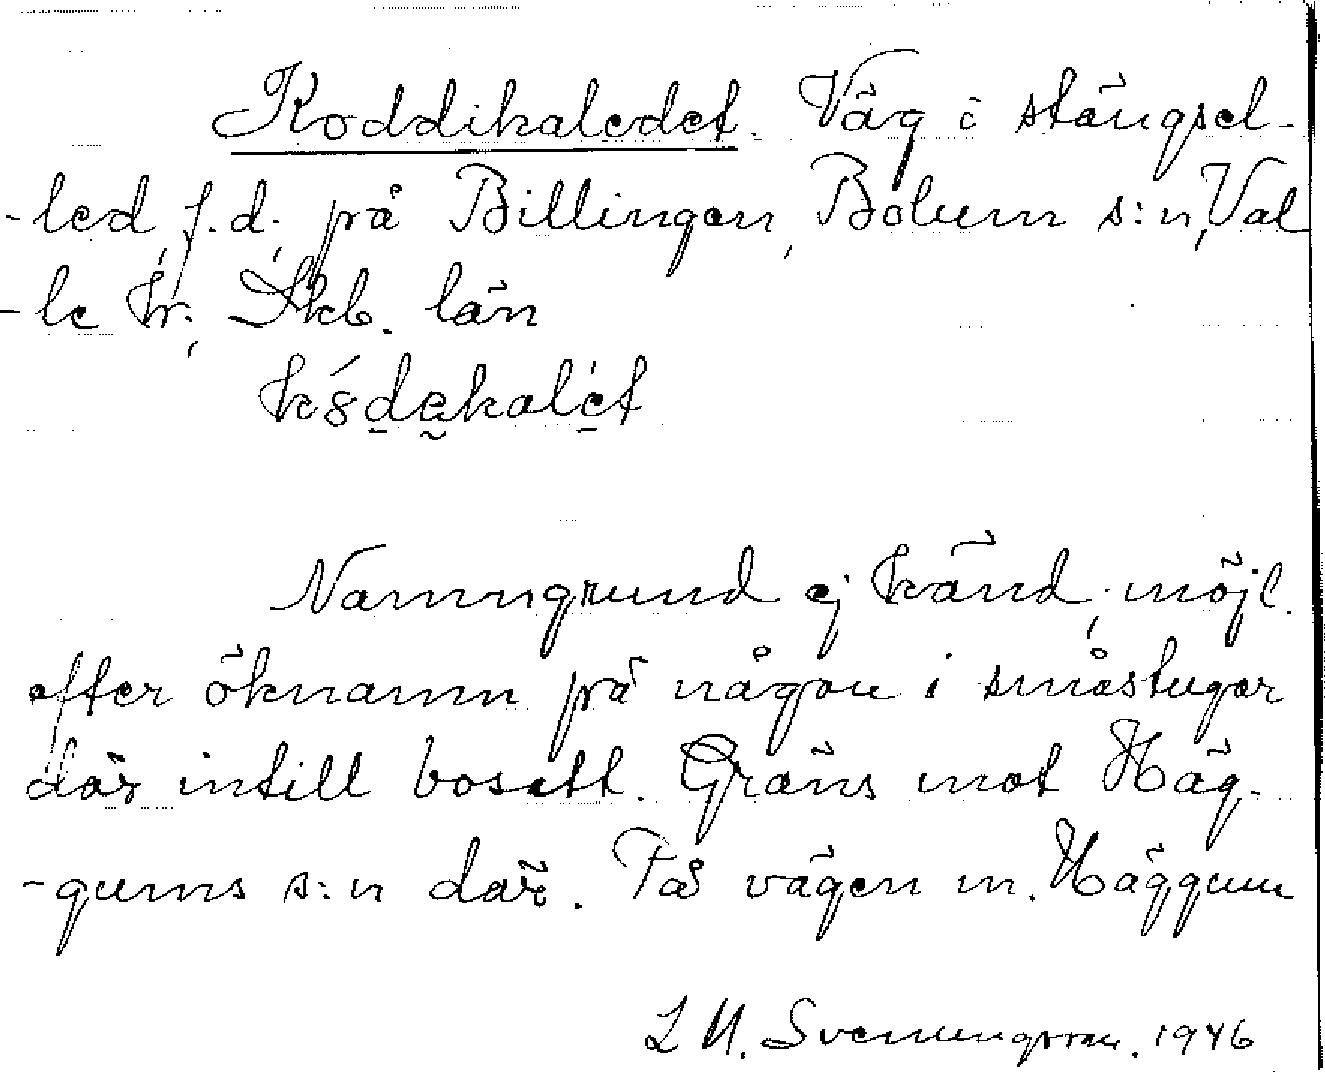 Koddikaledet. Väg i stängsel-
-led, f.d., på Billingen, Bolum s:n, Val
-le hr., Skb. län
Namngrund ej känd, möjl.
efter öknamn på någon i småstugor
där intill bosatt. Gräns mot Häg-
-gums s:n där. På vägen m. Häggum
L M. Svenungsson. 1946